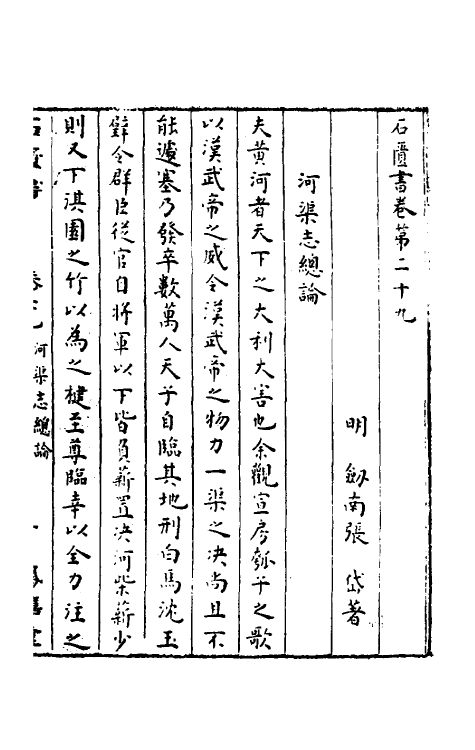 石匱書卷第二十九
明 劒南張 岱著
河渠志總論
夫黃河者天下之大利大害也余觀宣房瓠子之歌
以漢武帝之威令漢武帝之物力一渠之决尚且不
能遽塞乃發卒數萬人天子自臨其地刑白馬沈玉
璧令群臣從官自將軍以下皆負薪置决河柴薪少
則又下淇園之竹以為之楗至尊臨幸以全力注之
石匱書 卷廿九 河渠志總論 一